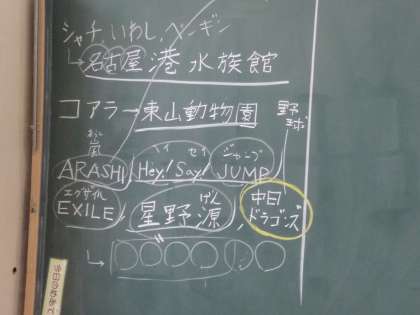 シャチ、いわし、ペンギン
名古屋港水族館
コアラ→東山動物園
野球
あらし
嵐
ヘイ セイ ジャンプ
ARASHI Hey! Say! JUMP
エグザイル げん
EXILE, 星野源, 中日ドラゴンズ
今日のめあて